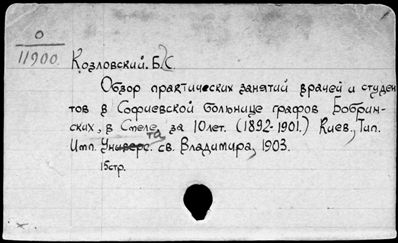 О
11900.
Козловский. Б. С
Обзор практических занятий врачей и студен
тов в Софиевской больнице графов Бобрин-
ских, в Смеле за 10 лет. (1892-1901.) Киев, Тип.
Имп. Универс. та св. Владимира, 1903.
15стр.